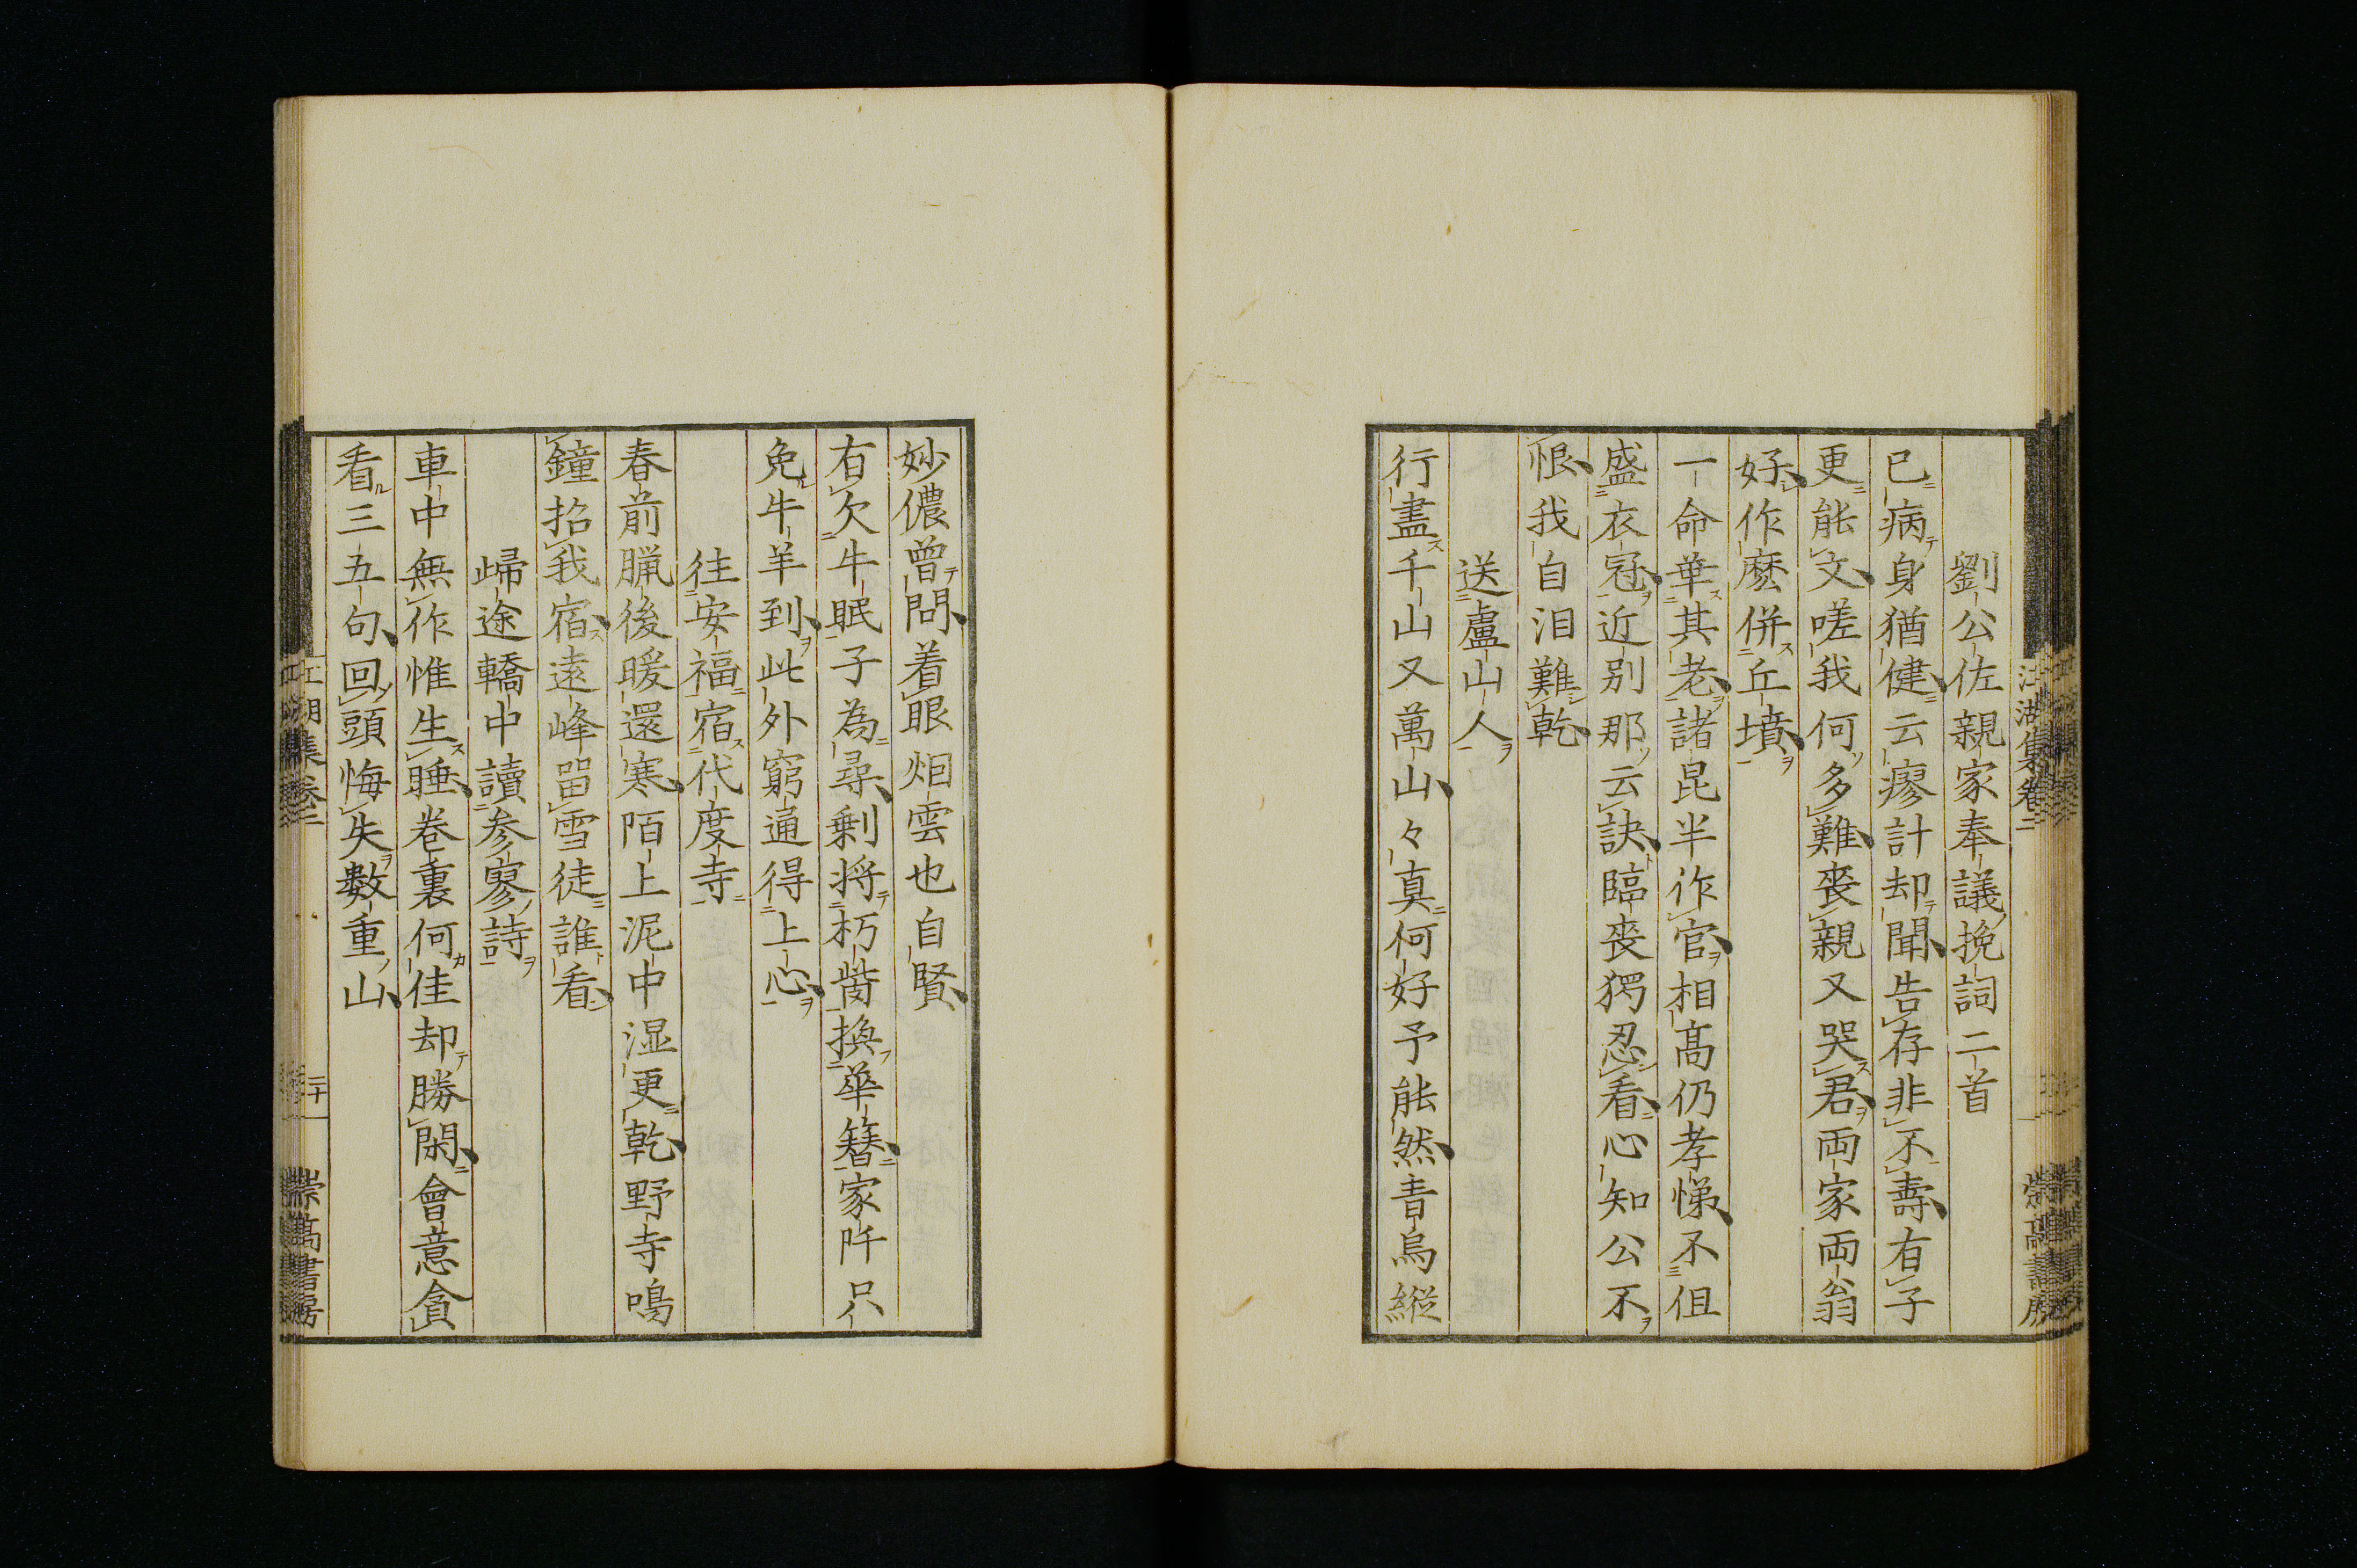 江湖集卷二
崇高書房
劉公佐親家奉議挽詞二首
已病身猶健云瘳計却聞告存非不壽有子
更能文嗟我何多難喪親又哭君両家両翁
好作麼併丘墳
一命華其老諸昆半作官相髙仍孝悌不徂
盛衣冠近別那云訣臨喪猂忍看心知公不
恨我自泪難乾
送盧山人
行盡千山又萬山々真何好予能然青烏縱
妙儂曾問着眼烟雲也自賢
有欠牛眠子為尋剰将朽胔換華簪家阡只
免牛羊到此外窮通得上心
往安福宿代度寺
春前臘後暖還寒陌上泥中湿更乾野寺鳴
鐘招我宿遠峰畱雪徒誰看
歸途轎中讀参寥詩
車中無作惟生睡卷裏何佳却勝閑會意貪
看三五句回頭悔失数重山
江湖集卷二
二十
崇高書房